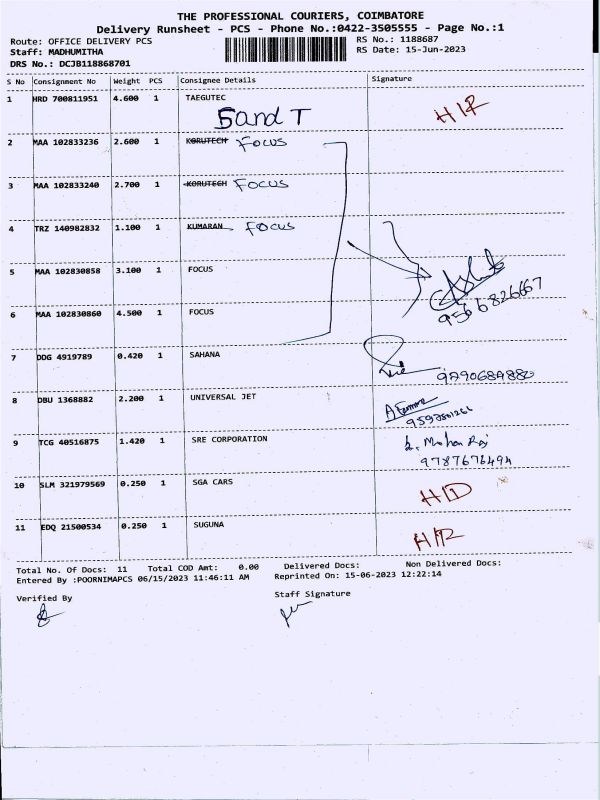 THE PROFESSIONAL COURIERS, COIMBATORE
Delivery Runsheet - PCS - Phone No.:0422-3505555 - Page No.:1
Route: OFFICE DELIVERY PCS RS No.: 1188687
Staff: MADHUMITHA RS Date: 15-Jun-2023
DRS No.: DCJB118868701
S No Consignment No Weight PCS Consignee Details Signature
1 HRD 700811951 4.600 1 TAEGUTEC
Sand T H/R
2 MAA 102833236 2.600 1 KORUTECH FOCUS
3 MAA 102833240 2.700 1 KORUTECH FOCUS
4 TRZ 140982832 1.100 1 KUMARAN FOCUS
5 MAA 102830858 3.100 1 FOCUS
9566826667
6 MAA 102830860 4.500 1 FOCUS
7 DDG 4919789 0.420 1 SAHANA
8 DBU 1368882 2.200 1 UNIVERSAL JET
9 TCG 40516875 1.420 1 SRE CORPORATION
9787676494
10 SLM 321979569 0.250 1 SGA CARS H/D
11 EDQ 21500534 0.250 1 SUGUNA H/R
Total No. Of Docs: 11 Total COD Amt: 0.00 Delivered Docs: Non Delivered Docs:
Entered By :POORNIMAPCS 06/15/2023 11:46:11 AM Reprinted On: 15-06-2023 12:22:14
Verified By Staff Signature